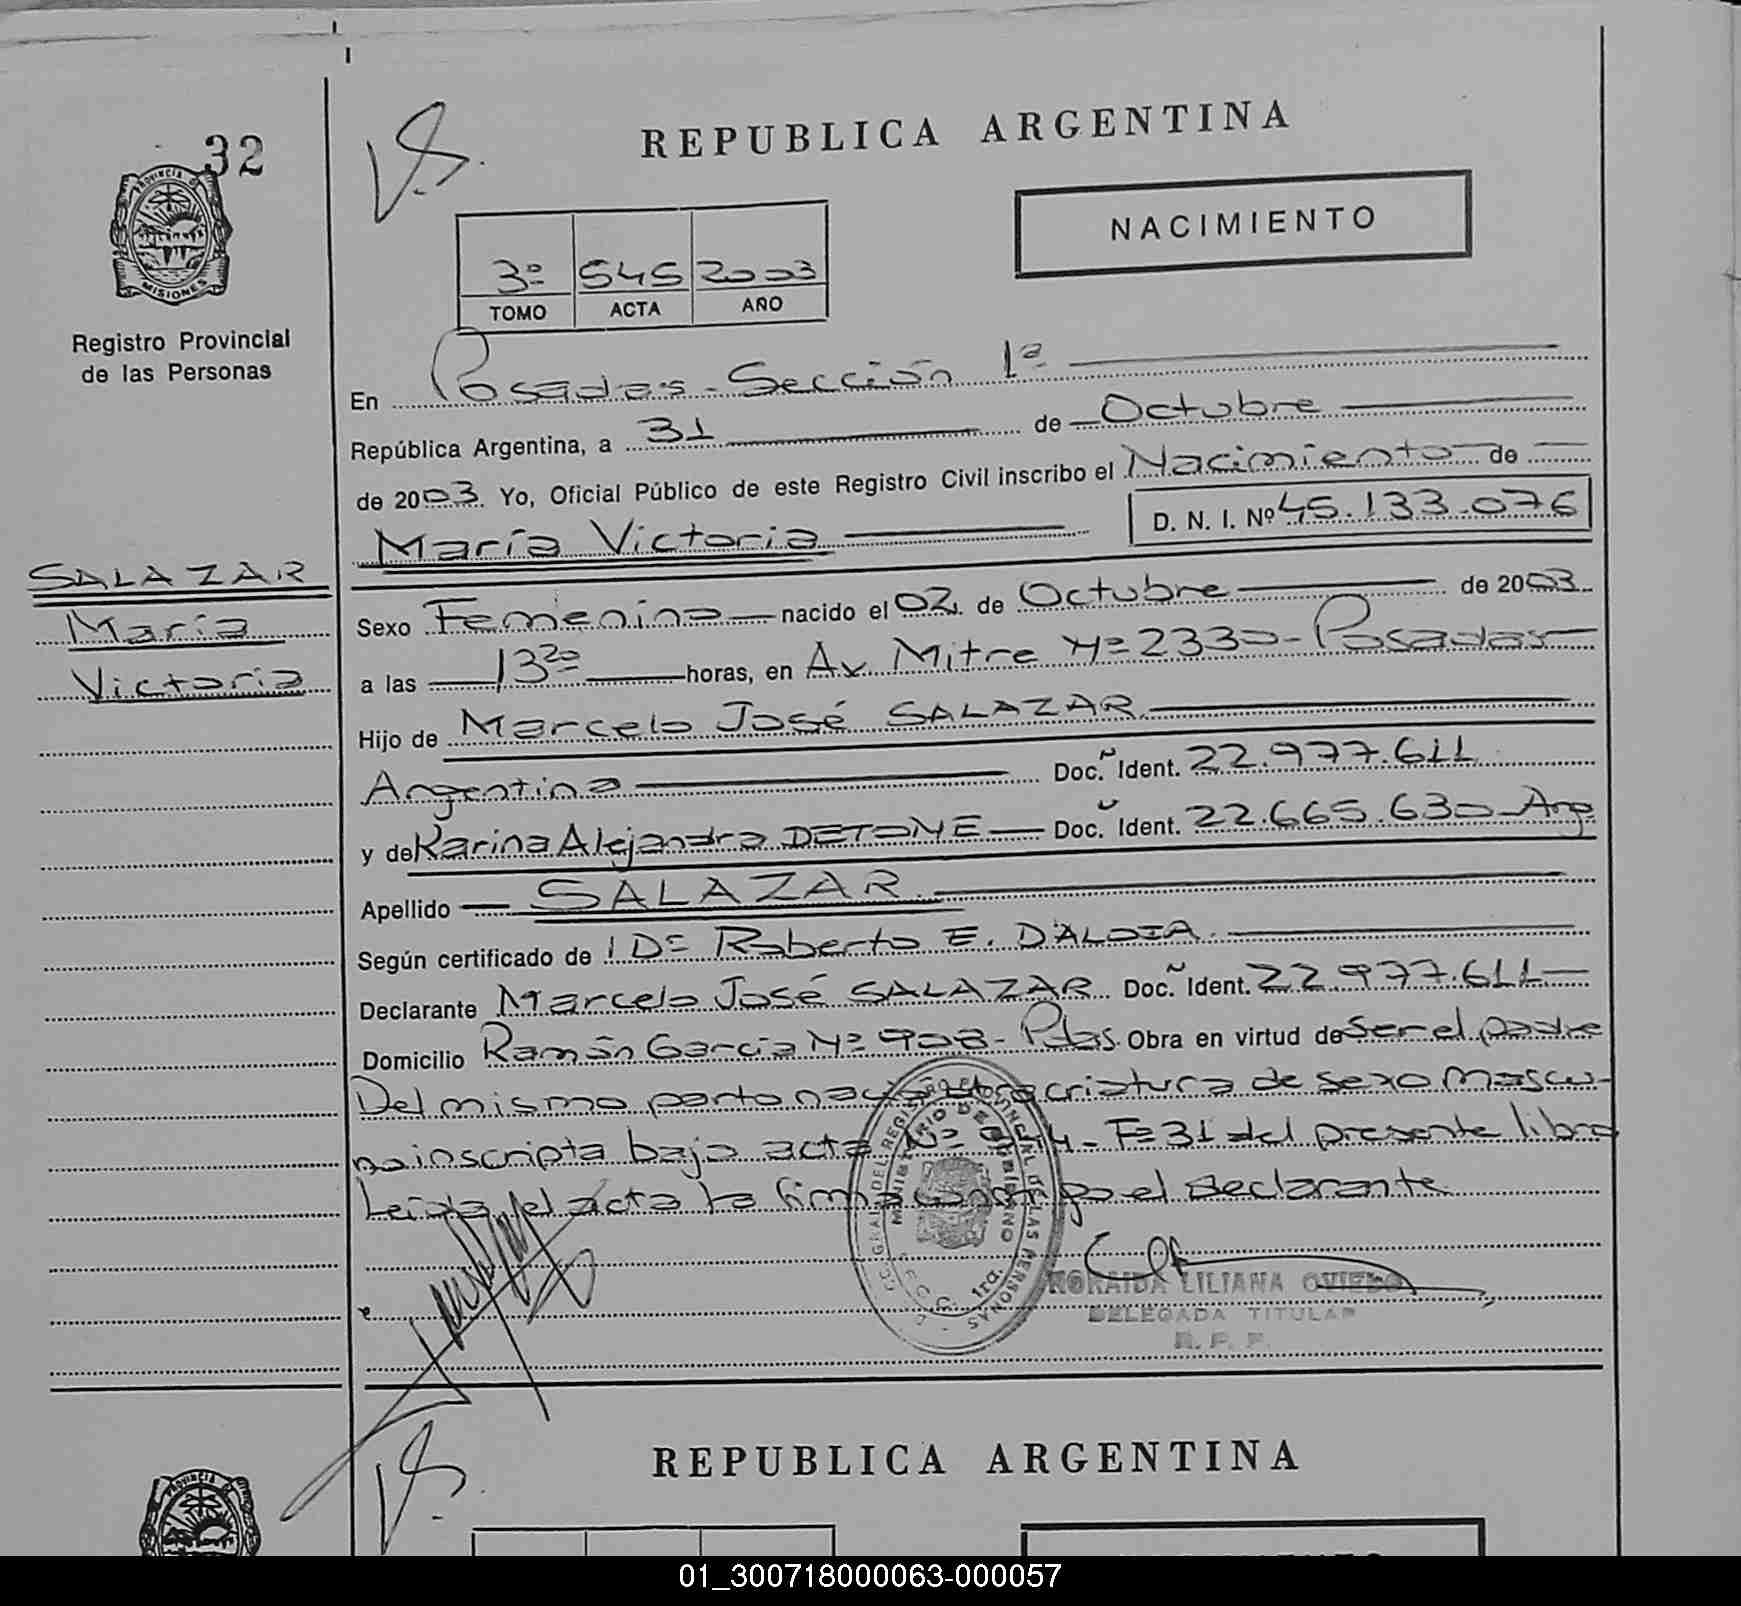 32
PROVINCIA DE
MISIONES
Registro Provincial
de las Personas
SALAZAR
María
Victoria
V.S.
REPUBLICA ARGENTINA
NACIMIENTO
3º 545 2003
TOMO ACTA AÑO
En Posadas - Sección 1ª
República Argentina, a 31 de Octubre
de 2003 Yo, Oficial Público de este Registro Civil inscribo el Nacimiento de
María Victoria D. N. I. Nº 45.133.076
Sexo Femenino nacido el 02 de Octubre de 2003
a las 13 20 horas, en Av. Mitre Nº 2330 - Posadas
Hijo de Marcelo José SALAZAR
Argentino Doc. Ident. 22.977.611
y de Karina Alejandra DETONE Doc. Ident. 22.665.630 - Arg
Apellido SALAZAR
Según certificado de Dº Roberto E. D'ALOIA
Declarante Marcelo José SALAZAR Doc. Ident. 22.977.611
Domicilio Ramón García Nº 908 - Pdas. Obra en virtud de ser el padre
Del mismo parto criatura de sexo mascu-
no inscripta bajo acta Nº Fº 31 del presente libro
Leida el acta la firma el declarante
MINISTERIO DE GOBIERNO
1ra.
MORAIDA LILIANA OVIEDO
DELEGADA TITULAR
R. P. P.
V.S.
REPUBLICA ARGENTINA
PROVINCIA
01_300718000063-000057